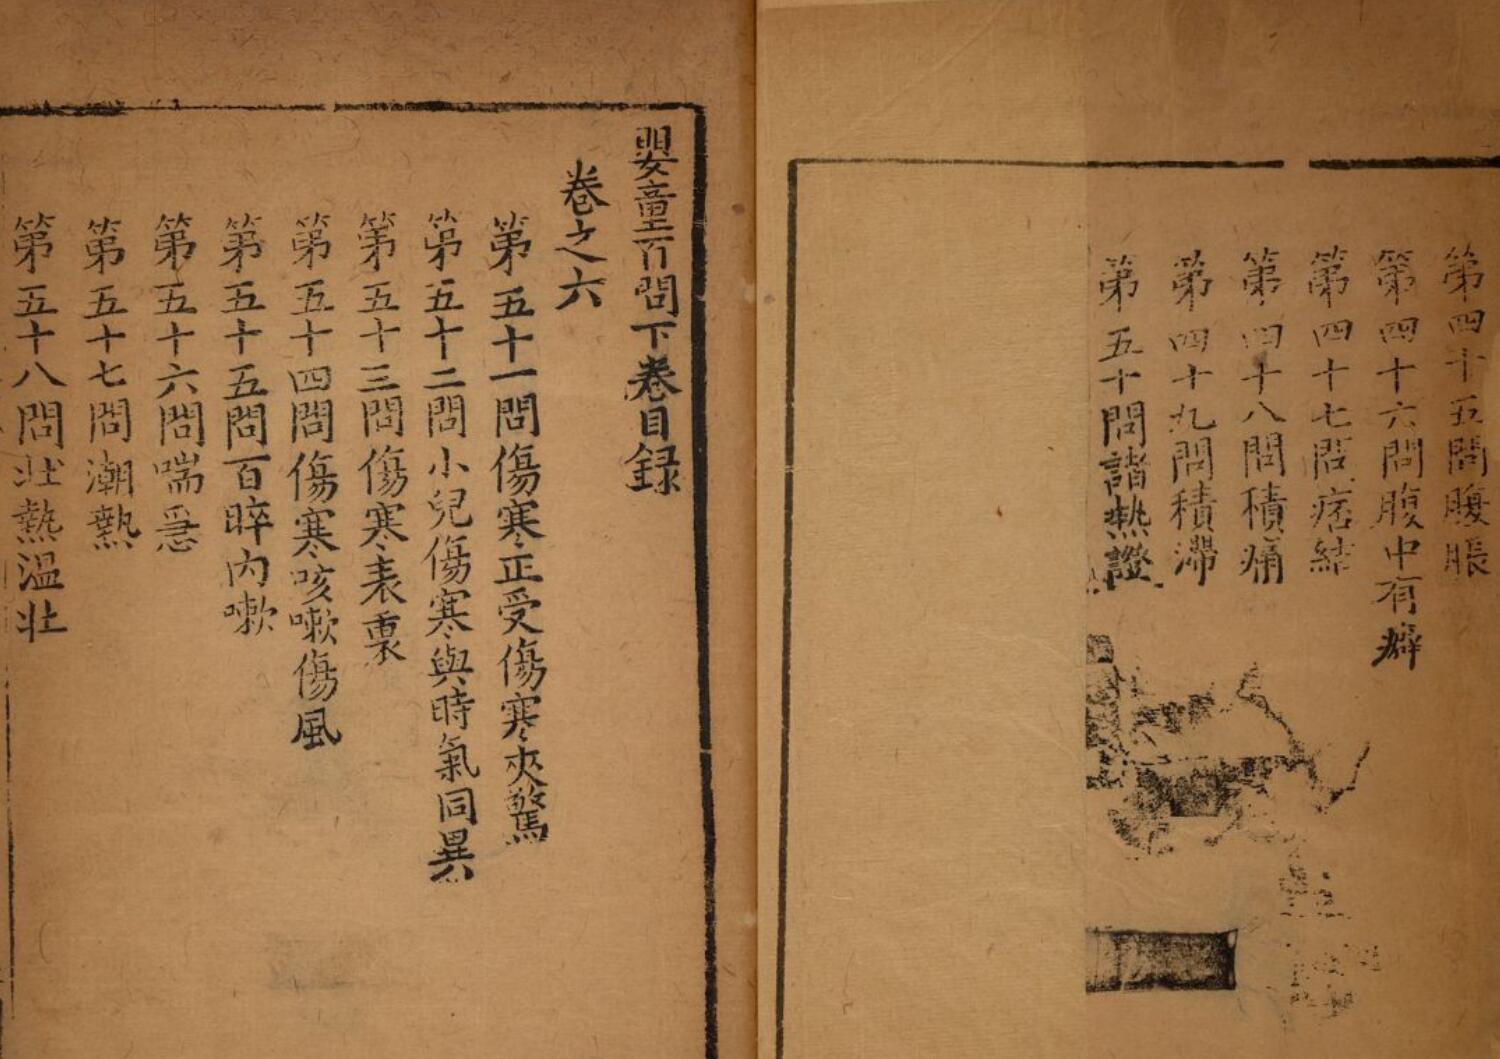 第四十五問腹脹
第四十六問腹中有癖
第四十七問痞結
第四十八問積痛
第四十九問積滯
第五十問諸熱證
嬰童百問下卷目録
卷之六
第五十一問傷寒正受傷寒夾驚
第五十二問小兒傷寒與時氣同異
第五十三問傷寒表裏
第五十四問傷寒咳嗽傷風
第五十五問百晬內嗽
第五十六問喘急
第五十七問潮熱
第五十八問壯熱溫壯